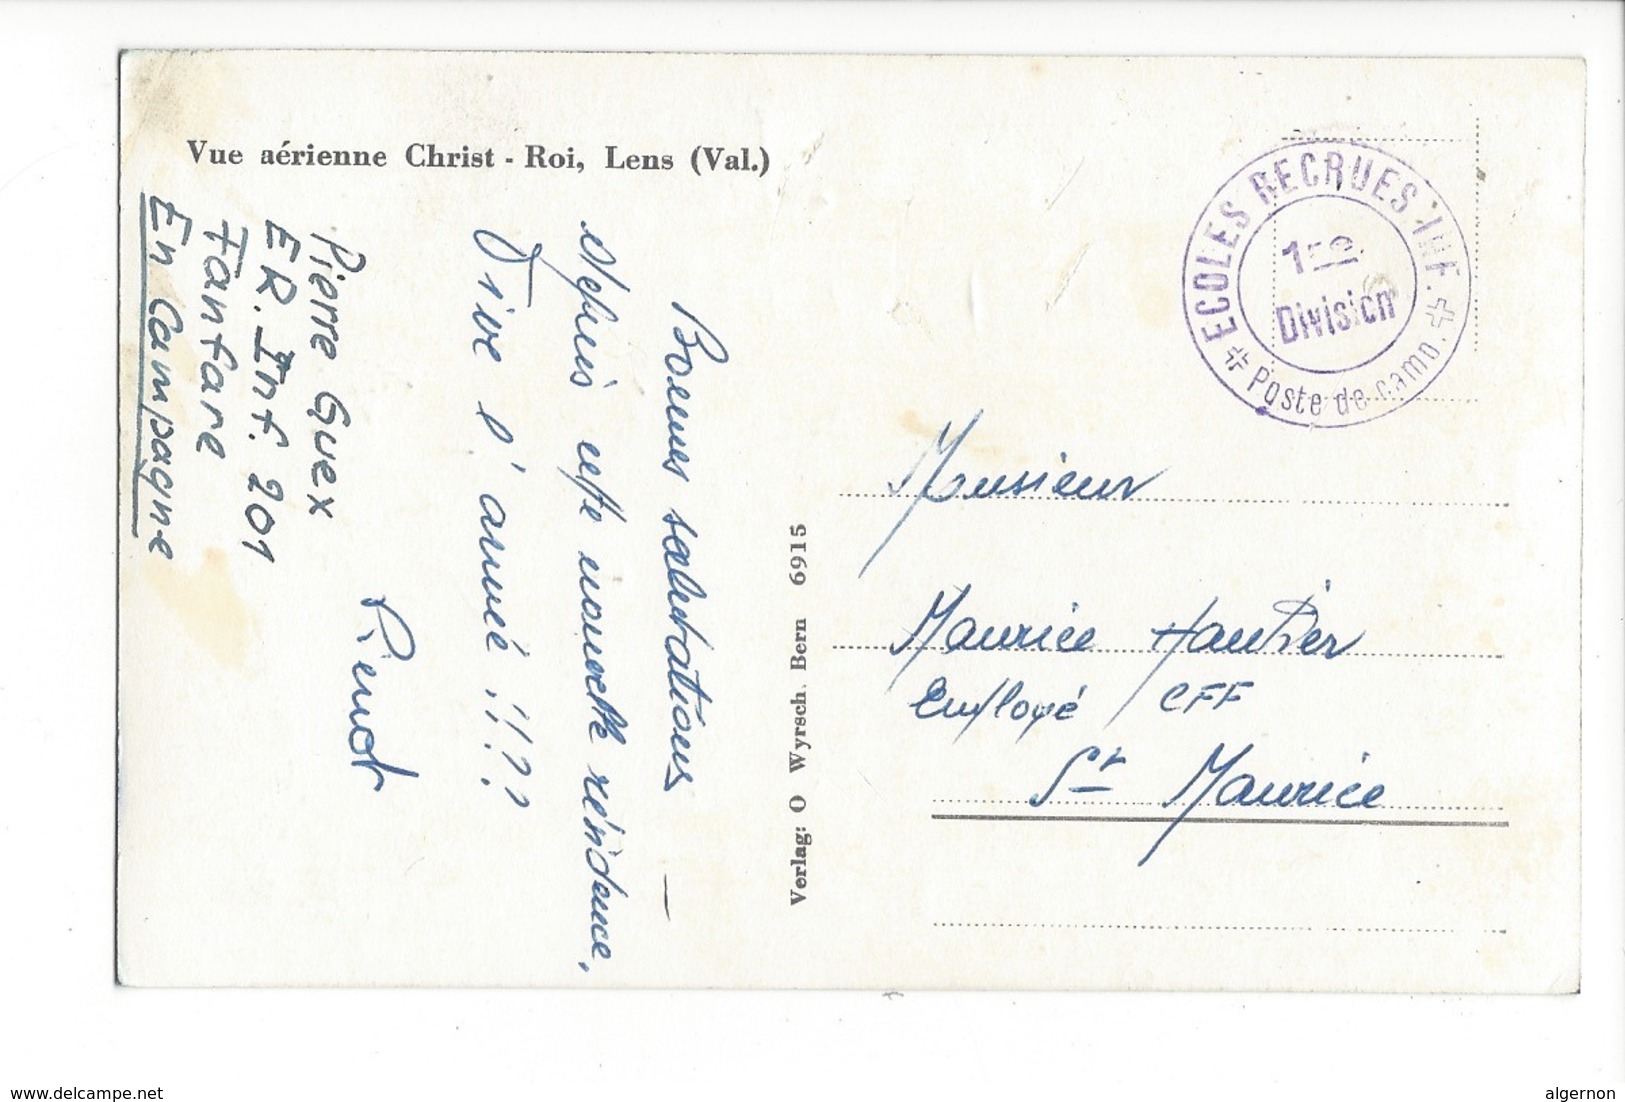 Vue aérienne Christ - Roi, Lens (Val.)
Bonnes salutations
depuis cette nouvelle résidence,
Vive l'armée !!??
Pierrot
Pierre Guex
ER. Inf. 201
Fanfare
En Campagne
Verlag: O Wyrsch. Bern 6915
ECOLES RECRUES INF.
1re
Division
Poste de camp.
Monsieur
Maurice
Employé CFF
St Maurice
www.delcampe.net
algernon